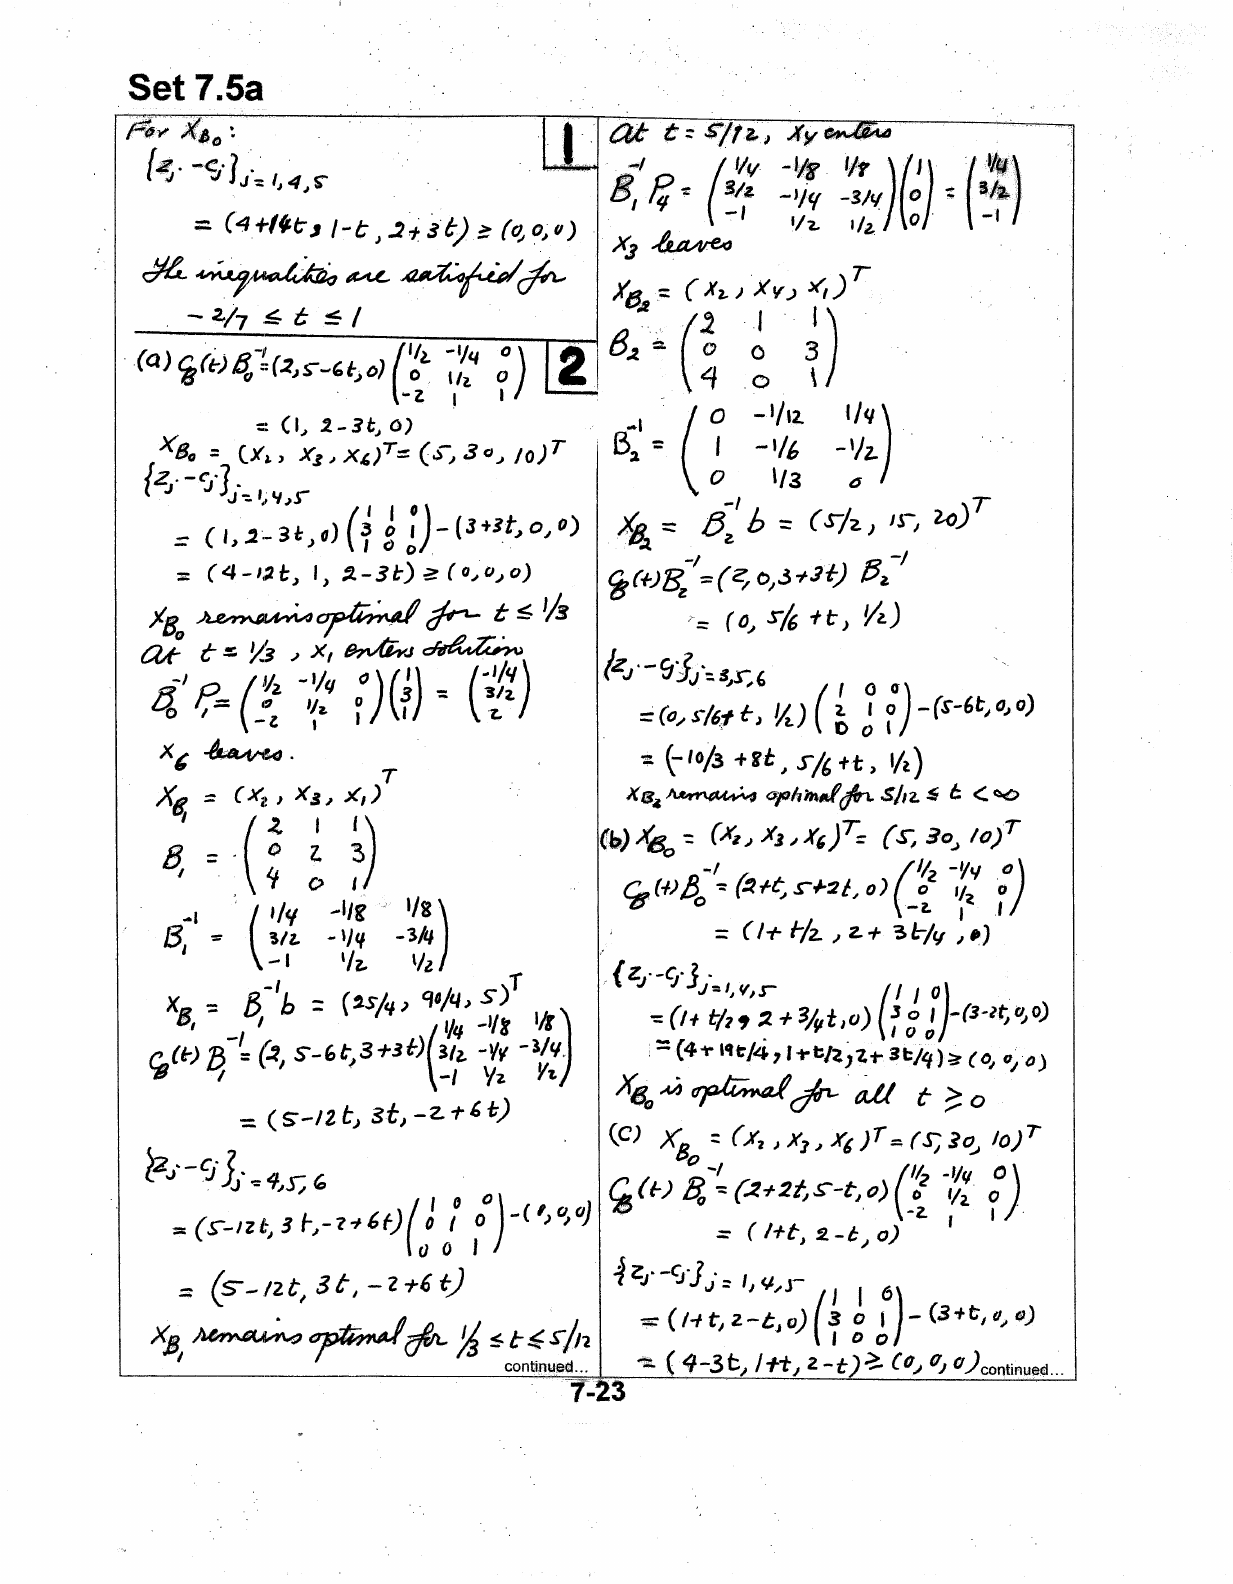 Set 7.5a
For X_B₀ :
1
{z_j - c_j}_j=1,4,5
= (4+14t, 1-t, 2+3t) ≥ (0,0,0)
The inequalities are satisfied for
-2/7 ≤ t ≤ 1
2
(a) C_B(t) B₀⁻¹ = (2,5-6t,0) (1/2 -1/4 0
0 1/2 0
-2 1 1)
= (1, 2-3t, 0)
X_B₀ = (X₂, X₃, X₆)ᵀ = (5, 30, 10)ᵀ
{z_j - c_j}_j=1,4,5
= (1,2-3t,0) (1 1 0
3 0 1
1 0 0) - (3+3t,0,0)
= (4-12t, 1, 2-3t) ≥ (0,0,0)
X_B₀ remains optimal for t ≤ 1/3
At t = 1/3, X₁ enters solution
B₀⁻¹ P₁ = (1/2 -1/4 0
0 1/2 0
-2 1 1) (1
3
1) = (-1/4
3/2
2)
X₆ leaves.
X_B₁ = (X₂, X₃, X₁)ᵀ
B₁ = (2 1 1
0 2 3
4 0 1)
B₁⁻¹ = (1/4 -1/8 1/8
3/2 -1/4 -3/4
-1 1/2 1/2)
X_B₁ = B₁⁻¹ b = (25/4, 90/4, 5)ᵀ
C_B(t) B₁⁻¹ = (2, 5-6t, 3+3t) (1/4 -1/8 1/8
3/2 -1/4 -3/4
-1 1/2 1/2)
= (5-12t, 3t, -2+6t)
{z_j - c_j}_j=4,5,6
= (5-12t, 3t, -2+6t) (1 0 0
0 1 0
0 0 1) - (0,0,0)
= (5-12t, 3t, -2+6t)
X_B₁ remains optimal for 1/3 ≤ t ≤ 5/12
continued...
At t = 5/12, X4 enters
B₁⁻¹ P₄ = (1/4 -1/8 1/8
3/2 -1/4 -3/4
-1 1/2 1/2) (1
0
0) = (1/4
3/2
-1)
X₃ leaves
X_B₂ = (X₂, X4, X₁)ᵀ
B₂ = (2 1 1
0 0 3
4 0 1)
B₂⁻¹ = (0 -1/12 1/4
1 -1/6 -1/2
0 1/3 0)
X_B₂ = B₂⁻¹ b = (5/2, 15, 20)ᵀ
C_B(t) B₂⁻¹ = (2,0,3+3t) B₂⁻¹
= (0, 5/6 + t, 1/2)
{z_j - c_j}_j=3,5,6
= (0, 5/6+t, 1/2) (1 0 0
2 1 0
0 0 1) - (5-6t,0,0)
= (-10/3 + 8t, 5/6 + t, 1/2)
X_B₂ remains optimal for 5/12 ≤ t < ∞
(b) X_B₀ = (X₂, X₃, X₆)ᵀ = (5, 30, 10)ᵀ
C_B(t) B₀⁻¹ = (2+t, 5+2t, 0) (1/2 -1/4 0
0 1/2 0
-2 1 1)
= (1+t/2, 2+3t/4, 0)
{z_j - c_j}_j=1,4,5
= (1+t/2, 2+3/4t, 0) (1 1 0
3 0 1
1 0 0) - (3-2t,0,0)
= (4+19t/4, 1+t/2, 2+3t/4) ≥ (0,0,0)
X_B₀ is optimal for all t ≥ 0
(c) X_B₀ = (X₂, X₃, X₆)ᵀ = (5, 30, 10)ᵀ
C_B(t) B₀⁻¹ = (2+2t, 5-t, 0) (1/2 -1/4 0
0 1/2 0
-2 1 1)
= (1+t, 2-t, 0)
{z_j - c_j}_j=1,4,5
= (1+t, 2-t, 0) (1 1 0
3 0 1
1 0 0) - (3+t,0,0)
= (4-3t, 1+t, 2-t) ≥ (0,0,0)
continued...
7-23